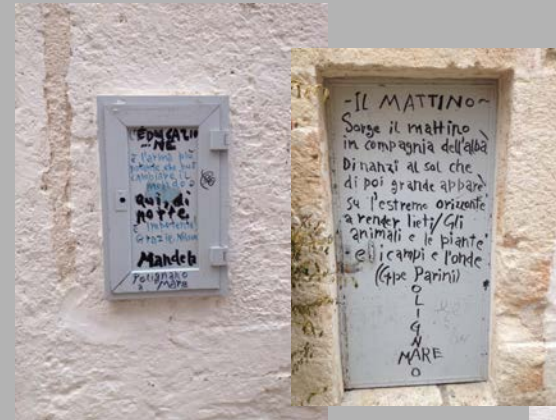 L'EDUCAZIO
NE
è l'arma più
potente che può
cambiare il
mondo
Qui, di
notte
è impotente!
Grazie,
Mandela
Polignano
a Mare
-IL MATTINO~
Sorge il mattino
in compagnia dell'alba
Dinanzi al sol che
di poi grande appare
su l'estremo orizzonte
a render lieti/Gli
animali e le piante
e i campi e l'onde
(Gpe Parini)
P
O
L
I
G
N
MARE
N
O